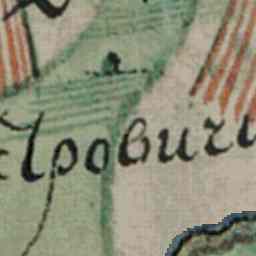 Яровичи